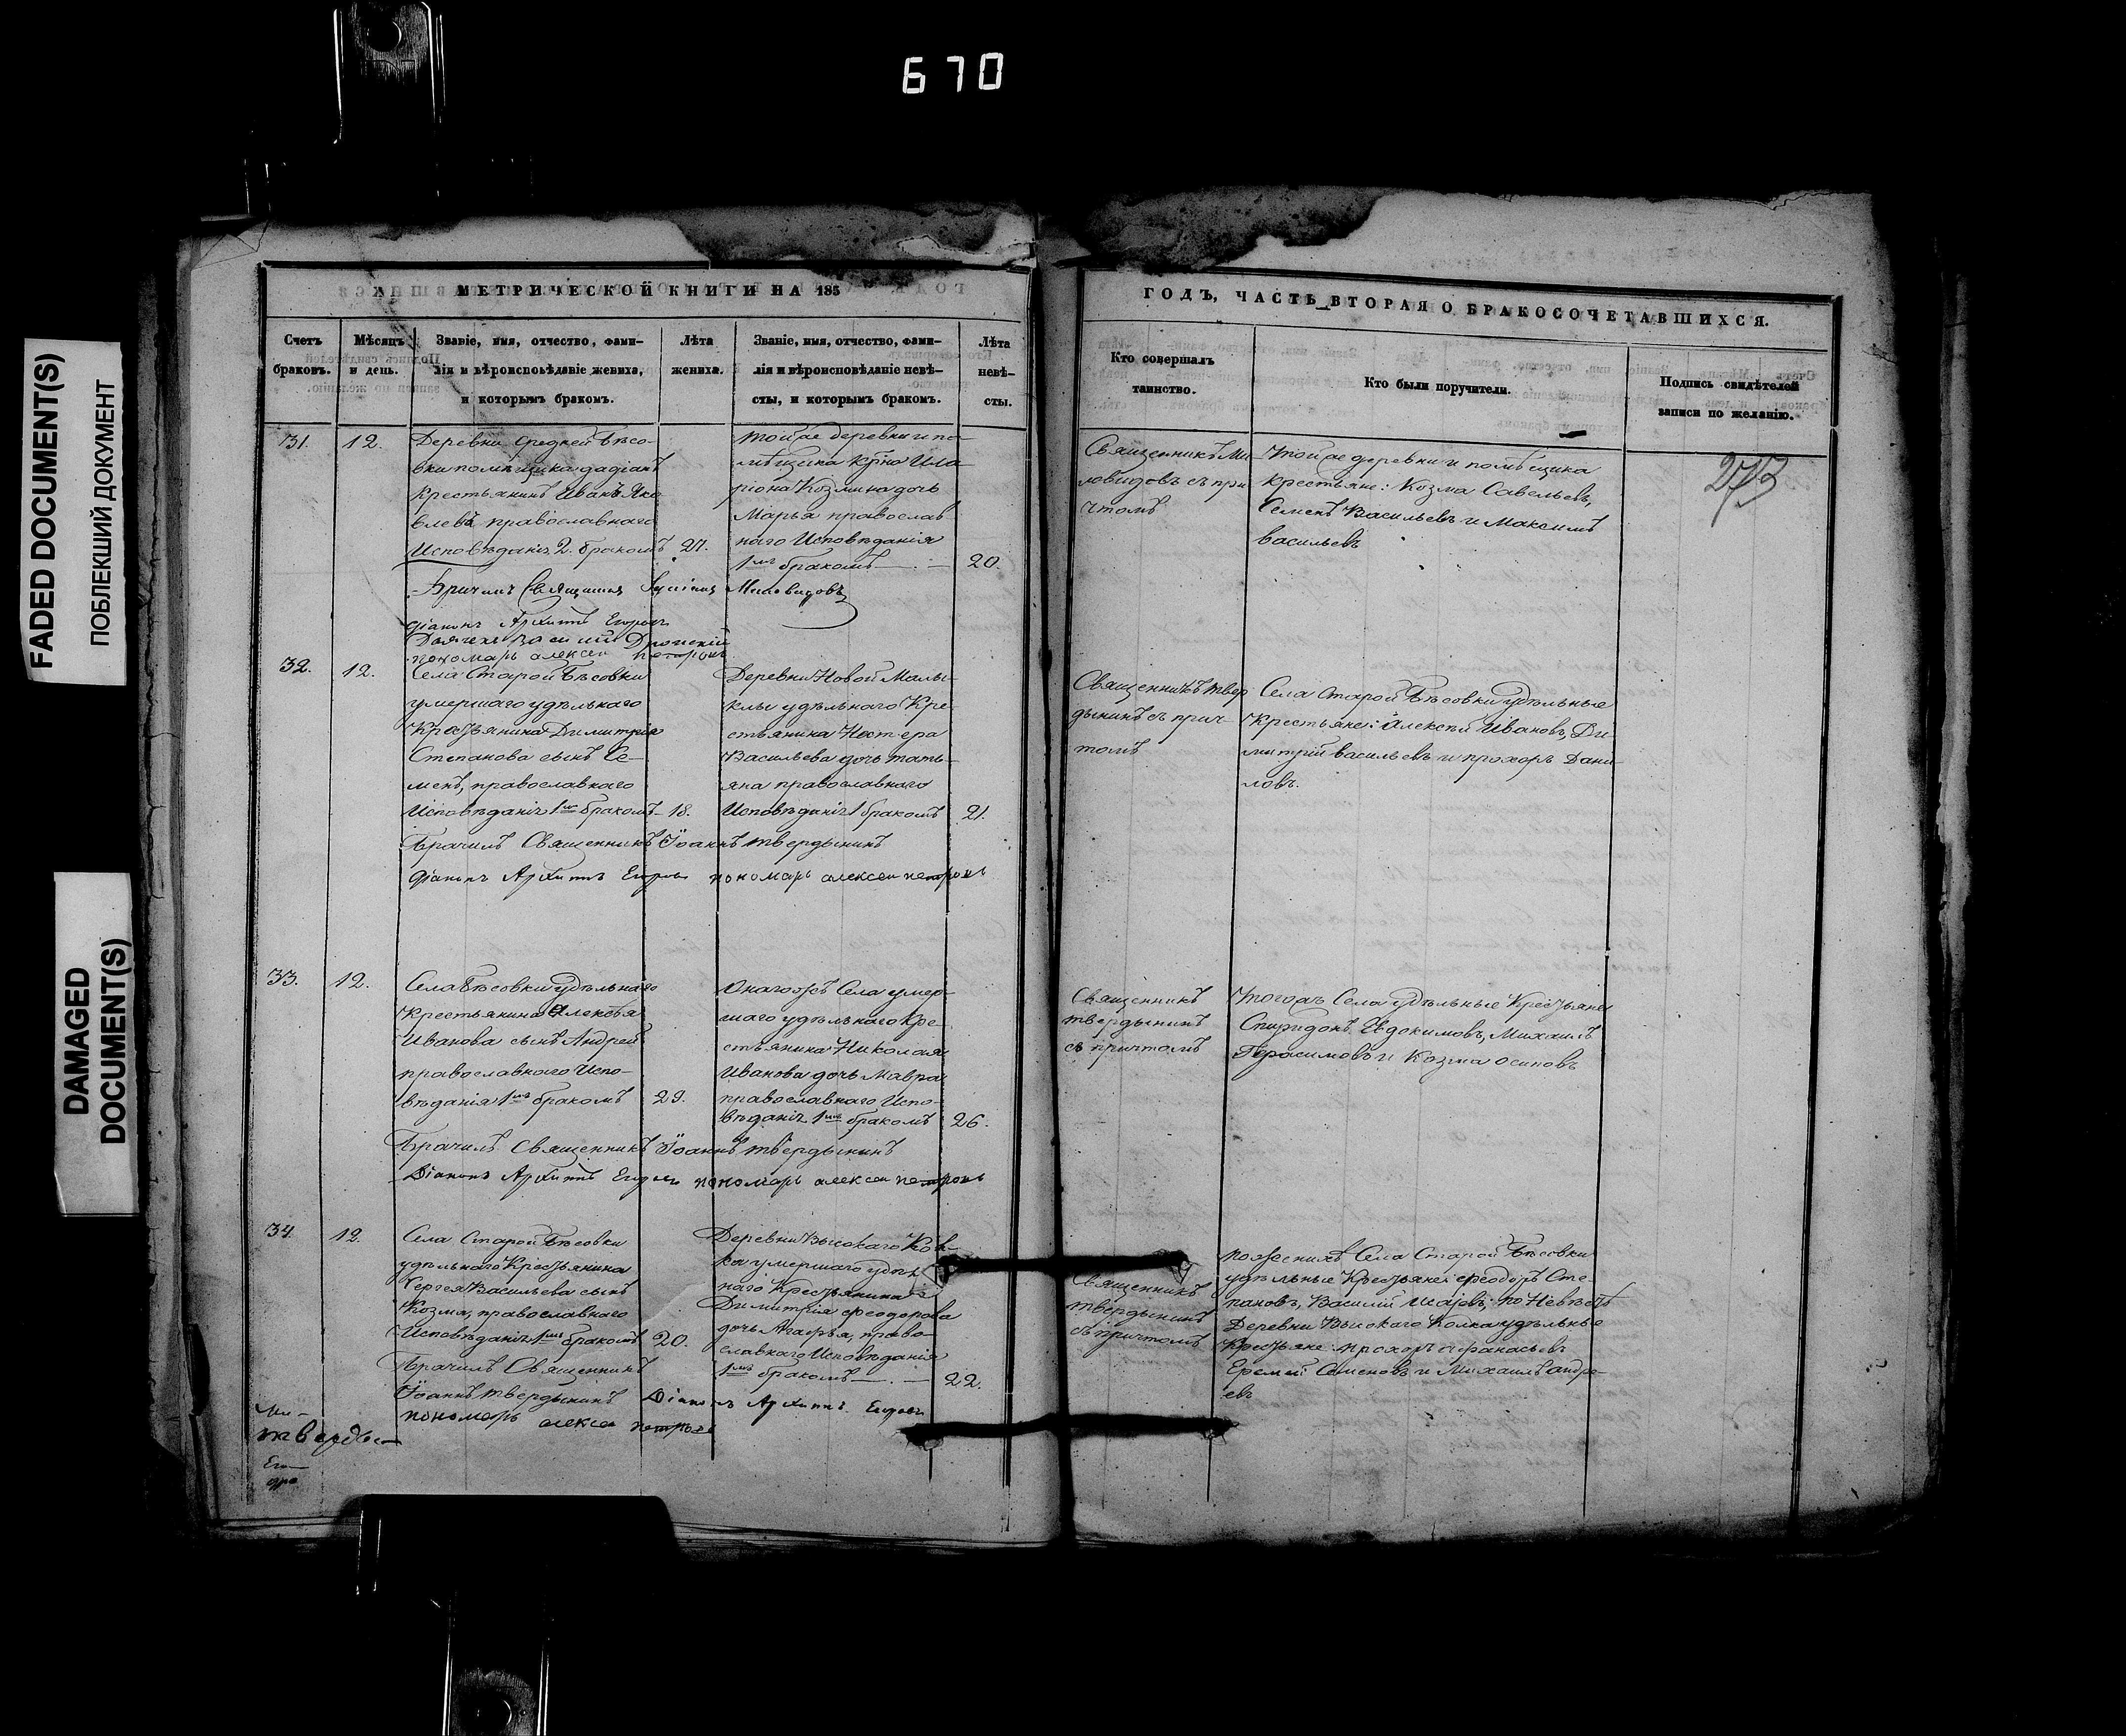 670
FADED DOCUMENT(S)
ПОБЛЕКШИЙ ДОКУМЕНТ
DAMAGED
DOCUMENT(S)
МЕТРИЧЕСКОЙ КНИГИ НА 185
Счетъ
браковъ.
Мѣсяцъ
и день.
Званіе, имя, отчество, фами-
лія и вѣроисповѣданіе жениха,
и которымъ бракомъ.
Лѣта
жениха.
Званіе, имя, отчество, фами-
лія и вѣроисповѣданіе невѣ-
сты, и которымъ бракомъ.
Лѣта
невѣ-
сты.
ГОДЪ, ЧАСТЬ ВТОРАЯ О БРАКОСОЧЕТАВШИХСЯ.
Кто совершалъ
таинство.
Кто были поручители.
Подпись свидѣтелей
записи по желанію.
31.
12.
Деревни Средней Бѣсо-
вки помѣщика
крестьянинъ Иванъ Яко
влевъ православнаго
Исповѣданія 2. бракомъ
27.
той же деревни и по-
мѣщика Ила
ріона Козмина дочь
Марья православ
наго Исповѣданія
1мъ бракомъ
20.
Священникъ Ми
ловидовъ съ при
чтомъ
Той же деревни и помѣщика
крестьяне: Козма Савельевъ,
Семенъ Васильевъ и Максимъ
васильевъ
273
Миловидовъ
діаконъ Архиппъ Егоровъ
пономарь алексеи петровъ
32.
12.
Села Старой Бѣсовки
умершаго удѣльнаго
Крестьянина Димитрія
Степанова сынъ Се-
менъ, православнаго
Исповѣданія 1мъ бракомъ
18.
Деревни Новой Малы-
клы удѣльнаго Кре
стьянина Нестера
Васильева дочь тать-
яна православнаго
Исповѣданія 1 бракомъ
21.
Священникъ твер
дынинъ съ прич-
томъ
Села Старой Бѣсовки удѣльные
Крестьяне: алексѣй Ивановъ, Ди
митрій васильевъ и прохоръ Дани
ловъ.
Брачилъ Священникъ Іоаннъ твердынинъ
діаконъ Архиппъ Егоровъ пономарь алексеи петровъ
33.
12.
Села Бѣсовки удѣльнаго
Крестьянина Алексѣя
Иванова сынъ Андрей
православнаго Испо-
вѣданія 1мъ бракомъ
29.
Онагожъ Села умер-
шаго удѣльнаго Кре
стьянина Николая
Иванова дочь Мавра
православнаго Испо-
вѣданія 1мъ бракомъ
26.
Священникъ
твердынинъ
съ причтомъ
Тогожъ Села удѣльные Крестьяне
Спиридонъ Евдокимовъ, Михаилъ
Герасимовъ и Козма осиповъ
Брачилъ Священникъ Іоаннъ твердынинъ
Діаконъ Архиппъ Егоровъ пономарь алексеи петровъ
34.
12.
Села Старой Бѣсовки
удѣльнаго Крестьянина
Сергея Васильева сынъ
Козма, православнаго
Исповѣданія 1мъ бракомъ
20.
Деревни Высокаго Кол-
ка умершаго удѣль
наго Крестьянина
Димитрія феодорова
дочь Агафья, право-
славнаго Исповѣданія
1мъ бракомъ
22.
Священникъ
твердынинъ
съ причтомъ
по женихѣ Села Старой Бѣсовки
удѣльные Крестьяне: феодоръ Сте
пановъ, Василій Исаевъ; по Невѣстѣ
Деревни Высокаго Колка удѣльные
Крестьяне: прохоръ афанасьевъ
Еремѣй Семеновъ и Михаилъ андре-
евъ
Брачилъ Священникъ
Іоаннъ твердынинъ
Діаконъ Архиппъ Егоровъ
пономарь алексеи петровъ